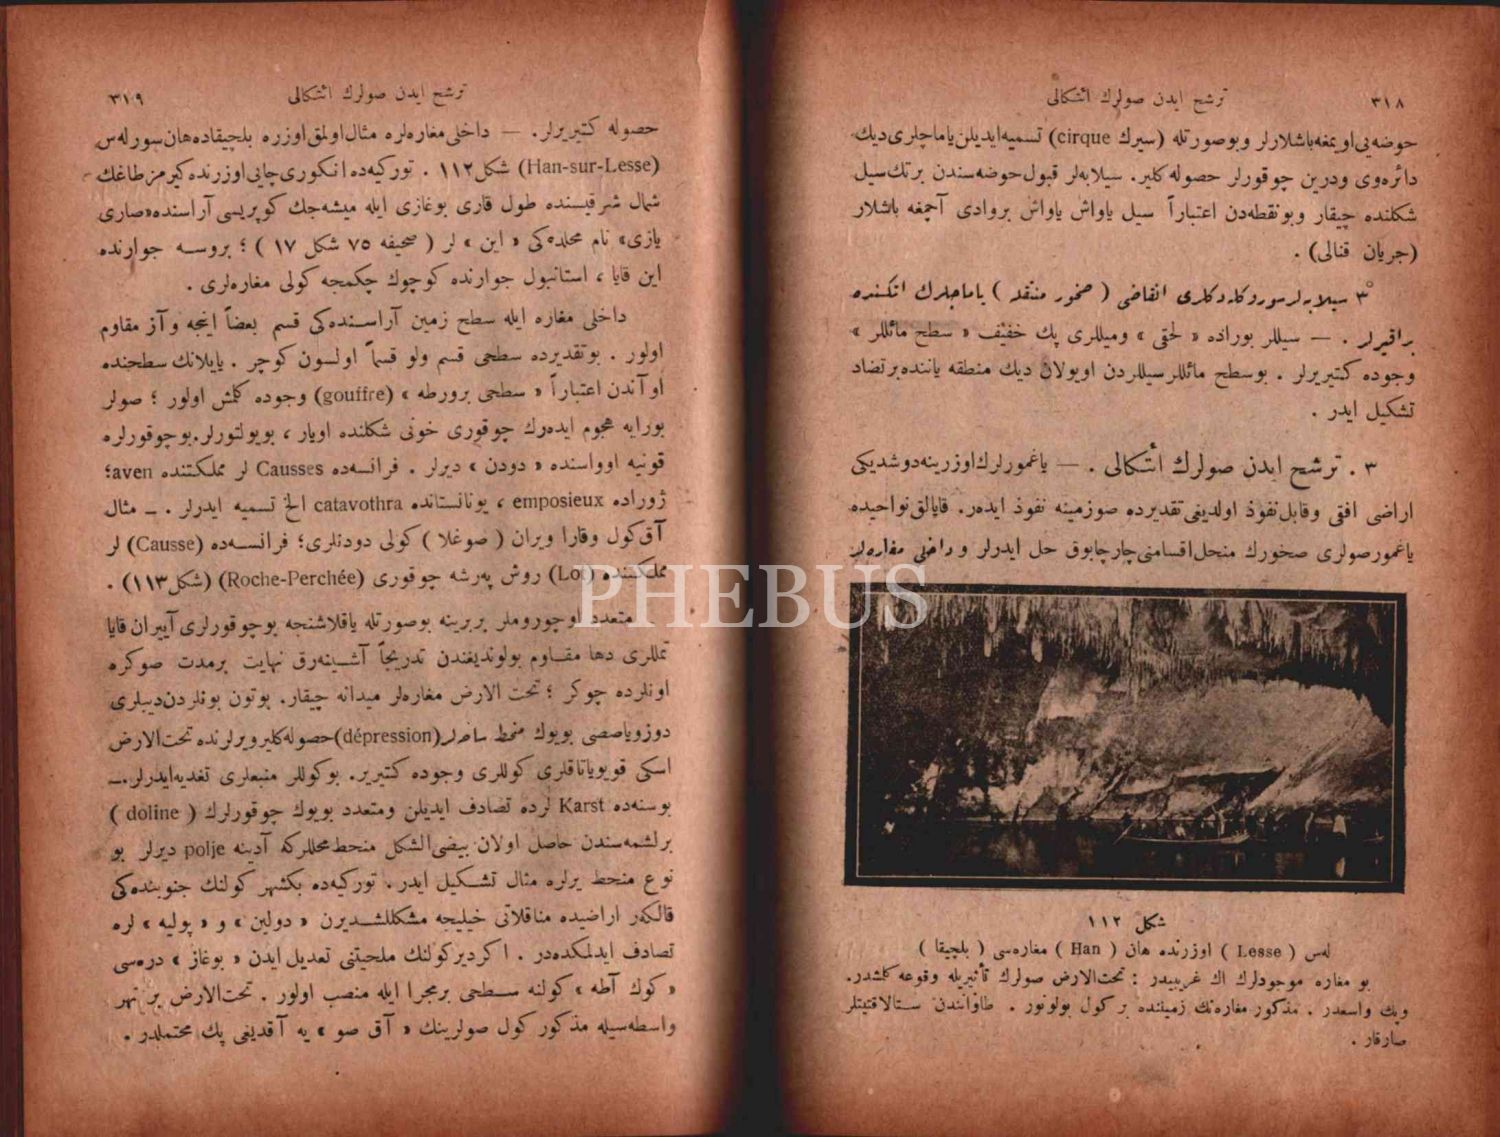 ٣١٨ ترشح ايدن صولرك ائتكالى
حوضه‌يى اويمغه باشلارلر وبوصورتله (سيرك cirque) تسميه ايديلن ياماچلرى ديك
دائره‌وى ودرين چوقورلر حصوله كلير. سيلابه‌لر قبول حوضه سندن برتك سيل
شكلنده چيقار وبونقطه‌دن اعتباراً سيل ياواش ياواش بروادى آچمغه باشلار
(جريان قنالى) .
٣ْ سيلابه لر سوروكلدكلرى انقاضى ( صخور منتقله ) ياماجلرك اتكنده
براقيرلر . — سيللر بوراده « لحقى » وميللرى پك خفيف « سطح مائللر »
وجوده كتيريرلر . بوسطح مائللر سيللردن اويولان ديك منطقه ياننده برتضاد
تشكيل ايدر .
٣ . ترشح ايدن صولرك ائتكالى . — ياغمورلرك اوزرينه دوشديكى
اراضى افقى وقابل نفوذ اولديغى تقديرده صوزمينه نفوذ ايده‌ر. قايالق نواحيده
ياغمور صولرى صخورك منحل اقسامنى چارچابوق حل ايدرلر و داخلى مغاره‌لر
شكل ١١٢
له‌س ( Lesse ) اوزرنده هان ( Han ) مغاره‌سى ( بلچيقا )
بو مغاره موجودلرك اك غريبيدر : تحت‌الارض صولرك تأثيريله وقوعه كلشدر.
وپك واسعدر . مذكور مغاره‌نك زميننده بر كول بولونور . طاوانندن ستالاقتيتلر
صارقار .
٣١٩ ترشح ايدن صولرك ائتكالى
حصوله كتيريرلر. — داخلى مغاره‌لره مثال اولمق اوزره بلچيقاده هان سور له‌س
(Han-sur-Lesse) شكل ١١٢ . توركيه‌ده انكورى چايى اوزرنده كيرمز طاغك
شمال شرقيسنده طول قارى بوغازى ايله ميشه‌جك كوپريسى آراسنده «صارى
يازى» نام محلده‌كى « اين » لر ( صحيفه ٧٥ شكل ١٧ ) ؛ بروسه جوارنده
اين قايا ، استانبول جوارنده كوچوك چكمجه كولى مغاره‌لرى .
داخلى مغاره ايله سطح زمين آراسنده‌كى قسم بعضاً اينجه و آز مقاوم
اولور . بوتقديرده سطحى قسم ولو قسماً اولسون كوچر . يايلانك سطحنده
اوآندن اعتباراً « سطحى برورطه » (gouffre) وجوده كلمش اولور ؛ صولر
بورايه هجوم ايده‌رك چوقورى خونى شكلنده اويار ، بويولتورلر. بوچوقورلره
قونيه اوواسنده « دودن » ديرلر . فرانسه‌ده Causses لر مملكتنده aven؛
ژوراده emposieux ، يونانستانده catavothra الخ تسميه ايدرلر . — مثال
آق‌كول وقارا ويران ( صوغلا ) كولى دودنلرى؛ فرانسه‌ده (Causse) لر
مملكتنده (Lot) روش په‌رشه چوقورى (Roche-Perchée) (شكل ١١٣) .
متعدد اوچوروملر بربرينه بوصورتله ياقلاشنجه بوچوقورلرى آييران قايا
تمللرى دها مقاوم بولونديغندن تدريجاً آشينه‌رق نهايت برمدت صوكره
اونلرده چوكر ؛ تحت الارض مغاره‌لر ميدانه چيقار. بوتون بونلردن ديبلرى
دوزوياصصى بويوك منحط ساحه‌لر (dépression) حصوله كلير ويرلرنده تحت‌الارض
اسكى قويوياتاقلرى كوللرى وجوده كتيرير. بوكوللر منبعلرى تغديه ايدرلر.—
بوسنه‌ده Karst لرده تصادف ايديلن ومتعدد بويوك چوقورلرك ( doline )
برلشمه‌سندن حاصل اولان بيضى‌الشكل منحط محللركه آدينه polje ديرلر بو
نوع منحط يرلره مثال تشكيل ايدر . توركيه‌ده بكشهر كولنك جنوبنده‌كى
قالكر اراضيده مناقلاتى خيليجه مشكللشديرن « دولين » و « پوليه » لره
تصادف ايدلمكده‌در . اكردير كولنك ملحيتنى تعديل ايدن « بوغاز » دره‌سى
« كوك آطه » كولنه سطحى برمجرا ايله منصب اولور . تحت‌الارض بر نهر
واسطه‌سيله مذكور كول صولرينك « آق صو » يه آقديغى پك محتملدر .
PHEBUS